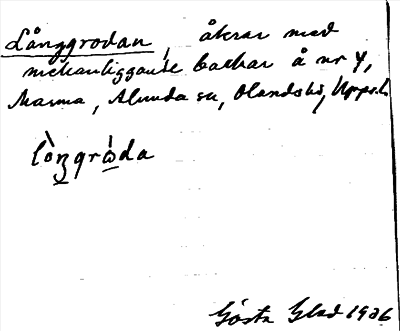 Långgrodan, åkrar med
mellanliggande backar å nr 4,
Marma, Almunda sn, Olandshd, Upps. l.
lòngròda
Gösta Glad 1926